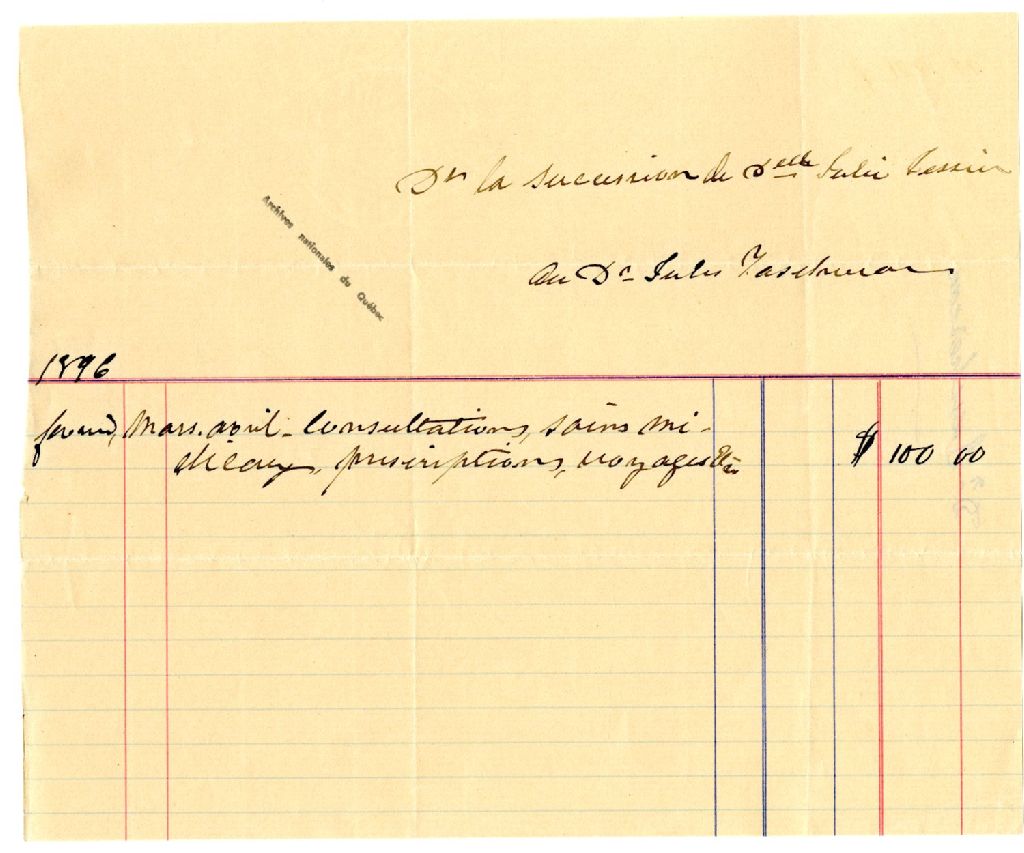 Dr la succession de Delle Julie Tessier
Archives nationales du Québec
au Dr Jules Taschereau
1896
février, Mars. avril - Consultations, soins mé-
dicaux, prescriptions, voyages Etc
$ 100 00